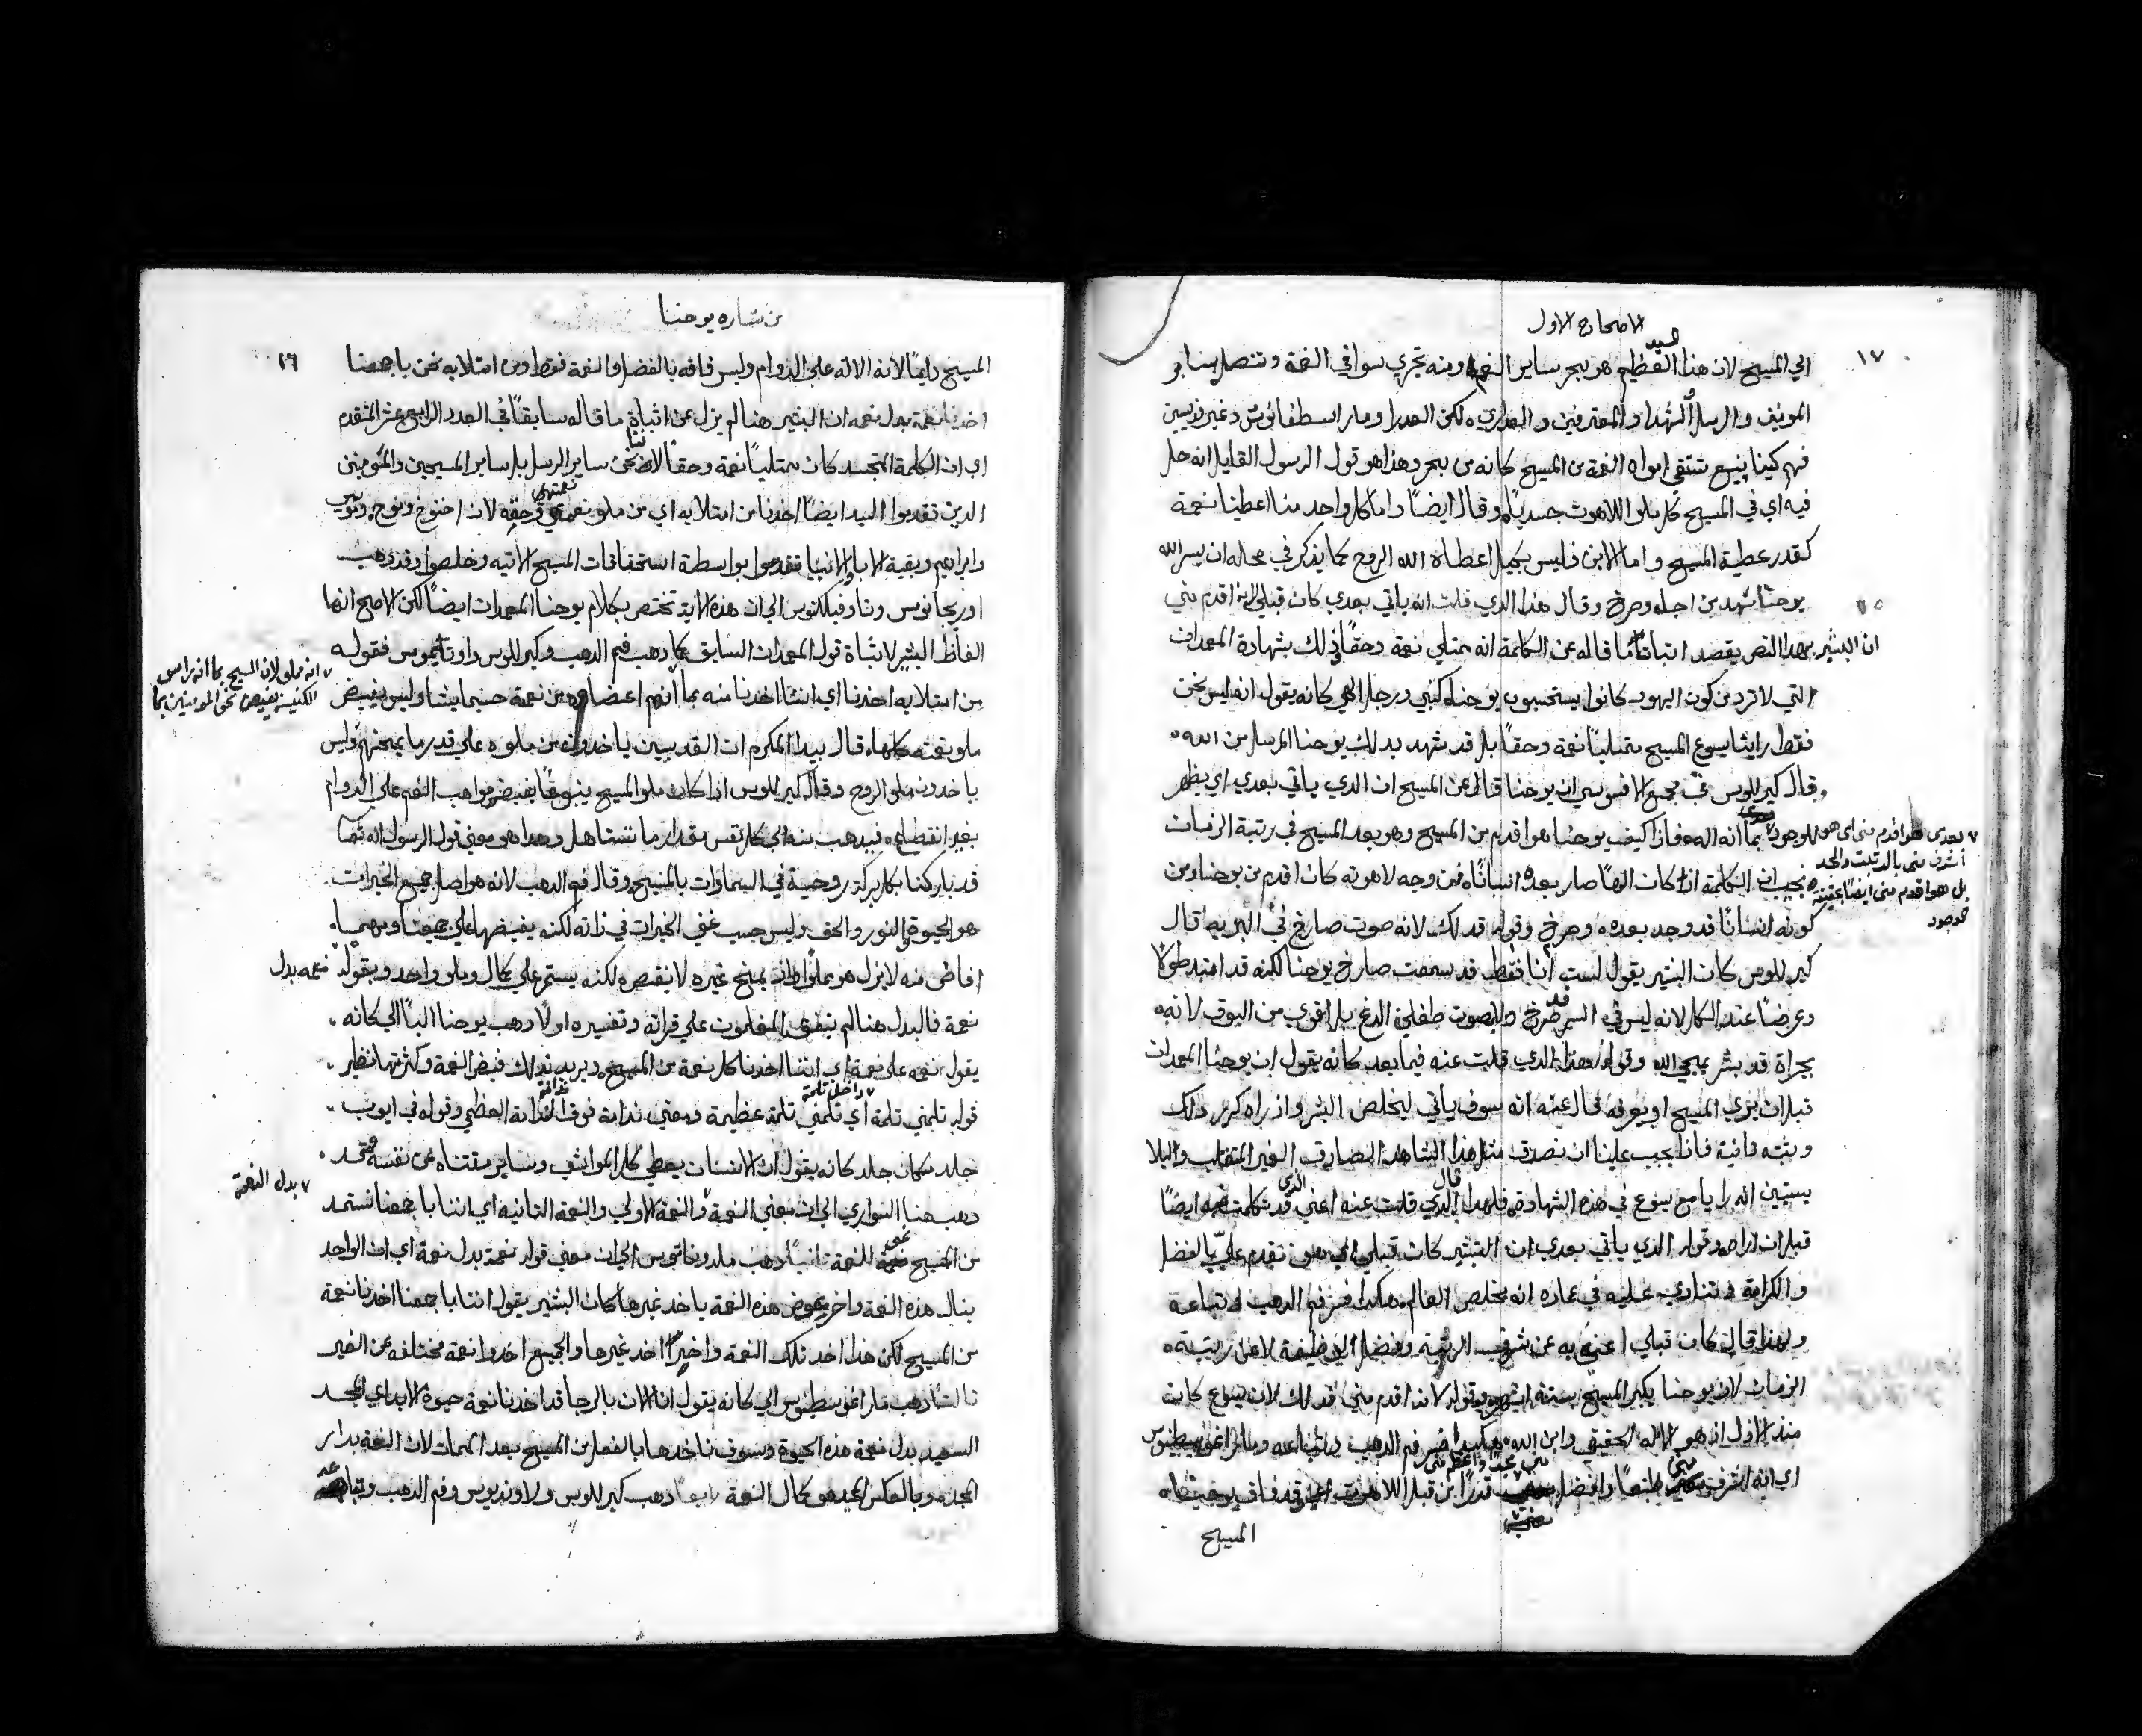 الاصحاح الاول
١٧
الي المسيح لان هذا السيد العظيم هو بحر ساير النعم ومنه تجري سواقي النعمة وتتصل بساير
والرسل والشهدا والمعترفين والعداري لكن العدرا ومار اسطفانوس وغير قديسين
فهم كينابيع تستقي امواه النعمة من المسيح كانه من بحر وهذا هو قول الرسول القايل انه حل
فيه اي في المسيح كل ملو اللاهوت جسديًا وقال ايضًا واما كل واحد منا اعطينا نعمة
كقدر عطية المسيح واما الابن فليس بكيل اعطاه الله الروح كما يذكر في محله ان يسر الله
١٥
يوحنا شهد من اجله وصرخ وقال هذا الدي قلت انه ياتي بعدي كان قبلي لانه اقدم مني
ان البشير بهدا النص يقصد اتبات ما قاله عن الكلمة انه ممتلي نعمة وحقًا وذلك بشهادة المعمدان
التي لا ترد من كون اليهود كانوا يستحسبون يوحنا كنبي ورجل الهي كانه يقول انه ليس نحن
فقط راينا يسوع المسيح ممتليًا نعمة وحقًا بل قد شهد بدلك يوحنا المرسل من الله
وقال كيرللوس في مجمع الافسوسي ان يوحنا قال عن المسيح ان الدي ياتي بعدي اي يظهر
بما انه اله فاذا كيف يوحنا هو اقدم من المسيح وهو بعد المسيح في رتبة الزمان
بعدي هو اقدم مني اي هو
اشرف مني بالرتبة والمجد
بل هو اقدم مني ايضًا
موجود
يجيب ان الكلمة اذ كان الهًا صار بعده انسانًا فمن وجه لاهوته كان اقدم من يوحنا ومن
كونه انسانًا قد وجد بعده وصرخ وقوله قد لك لانه صوت صارخ في البريه قال
كيرللوس كان البشير يقول لست انا فقط قد سمعت صارخ يوحنا لكنه قد امتد طولًا
وعرضًا عند الكل لانه ليس في السر قد صرخ بل اقوي من البوق لانه
بجراة قد بشر بمجي الله وقوله هدا الدي قلت عنه فيما بعد كانه يقول ان يوحنا المعمدان
قبل ان يري المسيح او يعرفه قال عنه انه سوف ياتي ليخلص البشر واذ راه كرر ذلك
وبثه ثانية فاذًا يجب علينا ان نصدق مثل هذا الشاهد الصادق الغير المتقلب
يستبين انه رايا مع يسوع في هذه الشهادة فلهدا قال الدي قلت عنه اعني الذي قد تكلمت عنه ايضًا
قبل ان اراه وقوله الذي ياتي بعدي ان كان قبلي اي هو تقدم عليّ بالفضل
والكرامة في عماده انه مخلص العالم هكدا فسر فم الدهب وتباعه
وبهذا قال كان قبلي اعني به عن شرف الرتبة وفضل الوظيفة لا عن رتبة
الزمان لان يوحنا يكبر المسيح بستة اشهر وقوله لانه اقدم مني قد لك لان يسوع كان
منذ الاول اذ هو الاله الحقيقي وابن الله هكيدا فسر فم الدهب واتباعه ومار اغوسطينوس
اي انه اشرف مني طبعًا وافضل مني مجدًا واعظم مني قدرًا من قبل اللاهوت
المسيح
من بشاره يوحنا
١٦
المسيح دايمًا لانه الاله على الدوام وليس فاقه بالفضل والنعمة فقط ومن امتلايه نحن باجمعنا
اخدنا نعمة بدل نعمه ان البشير هنا لم يزل عن اثباة ما قاله سابقًا في العدد الرابع عشر المتقدم
اي ان الكلمة المتجسد كان ممتليًا نعمة وحقًا لاننا نحن ساير الرسل بل ساير المسيحيين والمومنين
الدين تقدموا السيد ايضًا اخدنا من امتلايه اي من ملو نعمته وحقه لان اخنوخ ونوح
وابراهيم وبقية الابا والانبيا تقدسوا بواسطة استحقاقات المسيح الاتيه وخلصوا وقد دهب
اوريجانوس وتاوفيلكتوس الي ان هذه الاية تختص بكلام يوحنا المعمدان ايضًا لكن الاصح انها
الفاظ البشير لاثباة قول المعمدان السابق كما دهب فم الدهب وكيرللوس واوتيموس فقوله
من امتلايه اخدنا اي اننا اخدنا منه بما انهم اعضاوه من نعمة حسبما يشا وليس يفيض
انه مملو لان المسيح بما انه راس
الكنيسة يفيض نحو المومنين بما
ملو نعمته كلها قال بيدا المكرم ان القديسين ياخدون من ملوه علي قدر ما يمنحهم وليس
ياخدون ملو الروح وقال كيرللوس اذا كان ملو المسيح ينبوعًا يفيض مواهب النعم علي الدوام
بغير انقطاع فيدهب منه الي كل نفس مقدار ما تستاهل وهدا هو معني قول الرسول انه
قد باركنا بكل بركة روحية في السماوات بالمسيح وقال فم الدهب لانه هو اصل جميع الخيرات
هو الحيوة والنور والحق وليس حبس غني الخيرات في ذاته لكنه يفيضها علي جميعنا ومهما
افاض منه لايزل هو مملوًا وان يمنح غيره لا ينقص لكنه يستمر علي كمال وملو واحد وبقوله نعمه بدل
نعمة فالبدل هنا لم يتفق المعلمون علي قراته وتفسيره اولًا دهب يوحنا البا الي كانه
يقول نعمه علي نعمة اي اننا اخدنا كل نعمة من المسيح ويريد بدلك فيض النعمة وكثرتها نظير
قوله تلمني تلمة اي تلمني تلمة عظيمة ومعني ندابة فوق الندابة العظمي وقوله في ايوب
داخل تلمة
جلد مكان جلد كانه يقول ان الانسان يعطي كل المواشي وساير مقتناه عن نفسه
دهب هنا النواري الي ان معني النعمة والنعمة الاولي والنعمة التانيه اي اننا باجمعنا نستمد
بدل النعمة
من المسيح نعمة للنعمة تانيًا دهب ملدوناتوس الي ان معني قوله نعمة بدل نعمة اي ان الواحد
ينال هذه النعمة واخر بعوض هذه النعمة ياخد غيرها كان البشير يقول اننا باجمعنا اخدنا نعمة
من المسيح لكن هدا اخد تلك النعمة واخيرًا اخد غيرها والجميع اخدوا نعمة مختلفه عن الغير
تالتًا دهب مار اغوسطينوس الي كانه يقول اننا الان بالرجا قد اخدنا نعمة حيوة الابد اي المجد
السعيد بدل نعمة هذه الحيوة وسوف ناخدها بالفعل من المسيح بعد الممات لان النعمة بدار
المجد وبالعكس المجد هو كمال النعمة رابعًا دهب كيرللوس ولاونديوس وفم الدهب